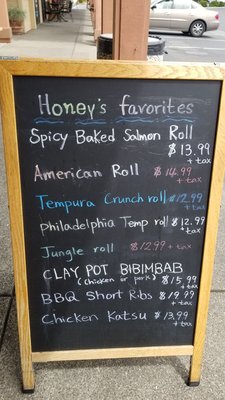 Honey's favorites
Spicy Baked Salmon Roll
$13.99
+ tax
American Roll $14.99
+ tax
Tempura Crunch roll $12.99
+ tax
Philadelphia Temp roll $12.99
+ tax
Jungle roll $12.99 + tax
CLAY POT BIBIMBAB
(chicken or pork) $15.99
+ tax
BBQ Short Ribs $19.99
+ tax
Chicken Katsu $13.99
+ tax